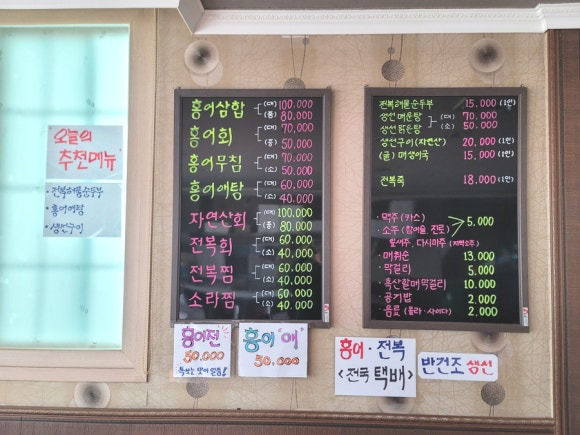 오늘의
추천메뉴
· 전복해물순두부
· 홍어애탕
· 생선구이
홍어삼합 (대) 100.000
(중) 80.000
홍어회 (대) 70.000
(중) 50.000
홍어무침 (대) 70.000
(소) 50.000
홍어애탕 (대) 60.000
(소) 40.000
자연산회 (대) 100.000
(중) 80.000
전복회 (대) 60.000
(소) 40.000
전복찜 (대) 60.000
(소) 40.000
소라찜 (대) 60.000
(소) 40.000
전복해물순두부 15.000 (1인)
생선매운탕 (대) 70.000
생선맑은탕 (소) 50.000
생선구이(자연산) 20,000 (1인)
(굴) 매생이국 15.000 (1인)
전복죽 18.000 (1인)
· 맥주 (카스)
· 소주 (참이슬 진로) 5.000
잎새주. 다시마주 (지역소주)
· 매취순 13.000
· 막걸리 5.000
· 흑산할매막걸리 10.000
· 공기밥 2.000
· 음료 (콜라·사이다) 2.000
홍어전
50.000
톡쏘는 맛이 일품!
홍어 "애"
50.000
홍어·전복
<전국 택배>
반건조 생선